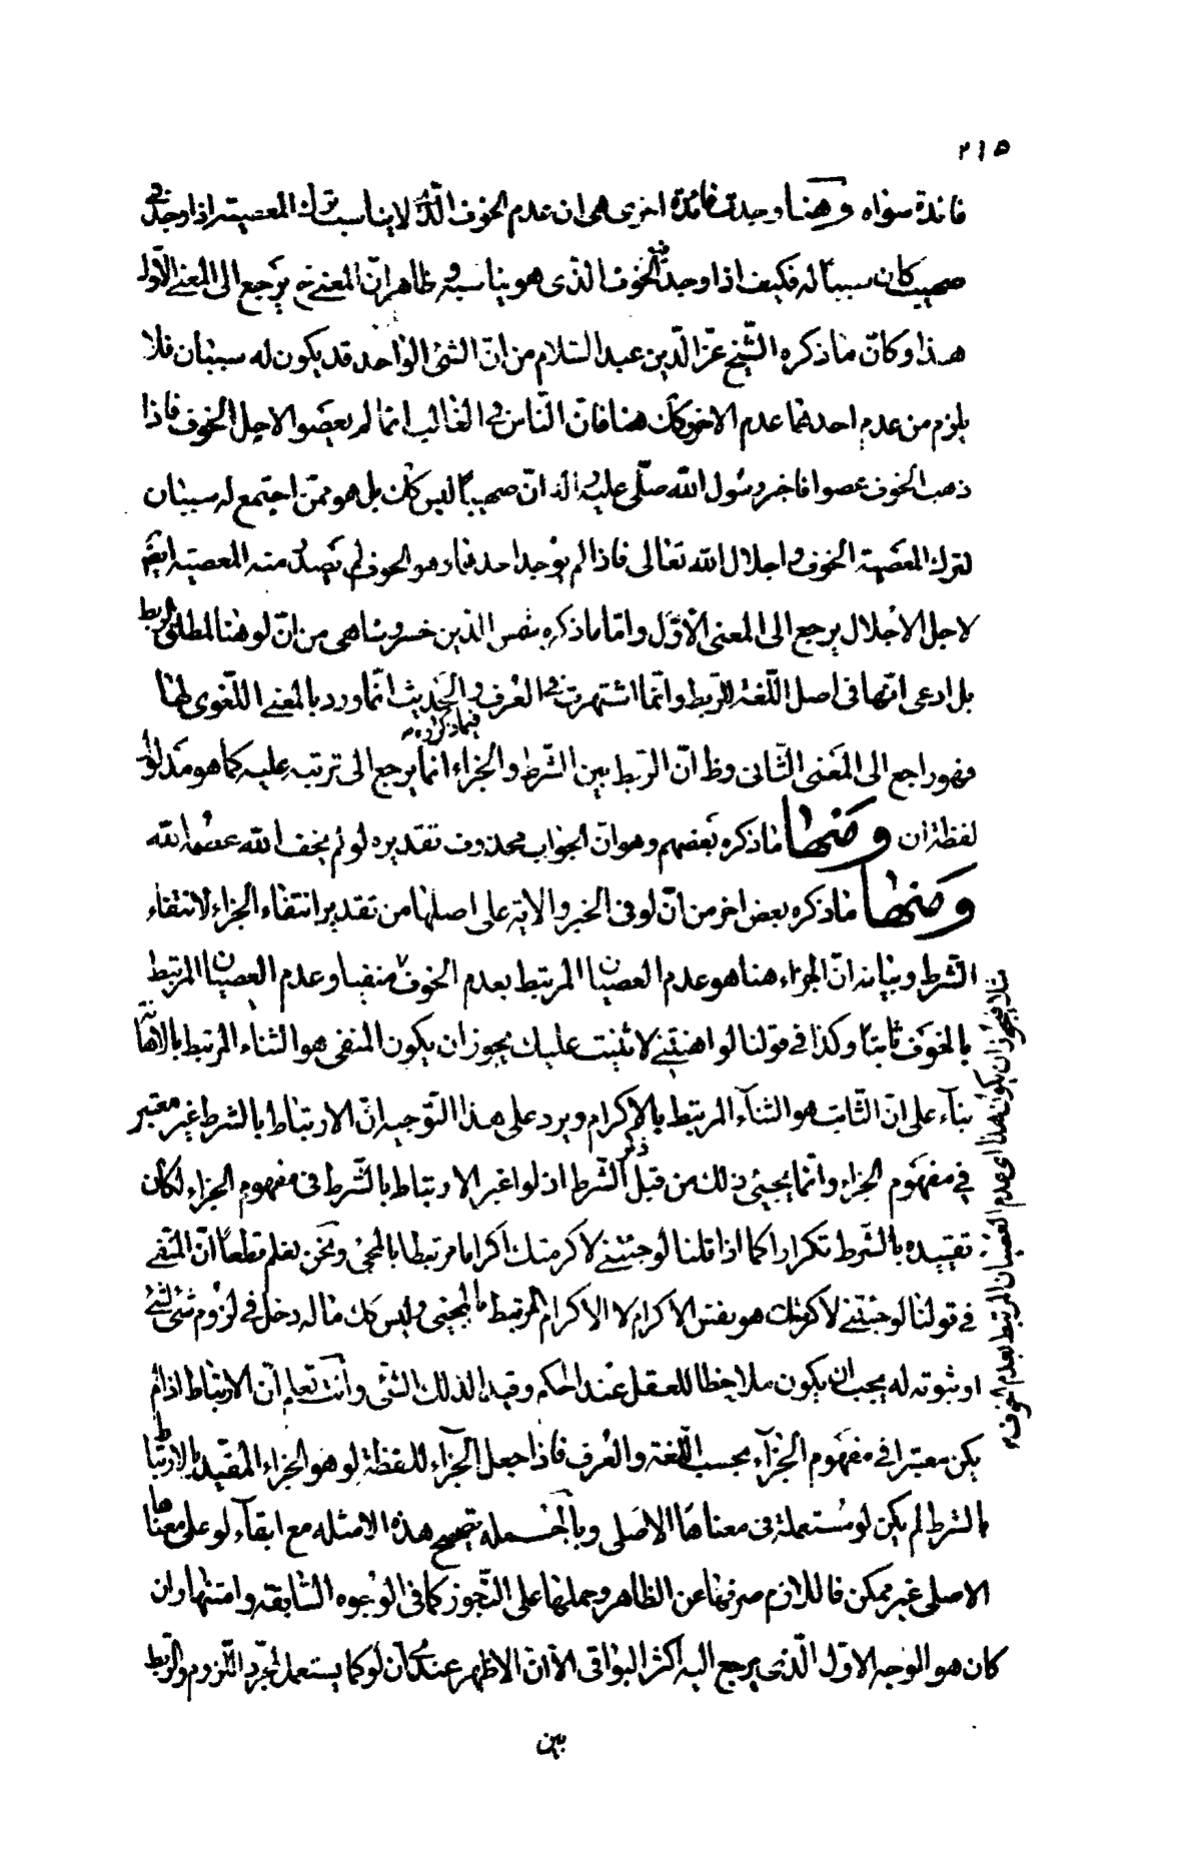 ٢١٥
فائدة سواه وهنا وجدت فائدة اخرى هى ان عدم الخوف الذى لا يناسب ترك المعصية اذا وجد فى
صهيب كان سببا له فكيف اذا وجد فيه الخوف الذى هو يناسبه وظاهر ان المعنى ح يرجع الى المعنى الاول
هذا وكانّ ما ذكره الشّيخ عزّ الدّين عبد السّلام من انّ الشئ الواحد قد يكون له سببان فلا
يلزم من عدم احدهما عدم الاخر وكك هنا فانّ النّاس فى الغالب انّما لم يعصوا لاجل الخوف فاذا
ذهب الخوف عصوا فاخبر رسول الله صلّى عليه واله انّ صهيبًا ليس كك بل هو ممّن اجتمع له سببان
لترك المعصية الخوف واجلال الله تعالى فاذا لم يوجد احدهما وهو الخوف لم يصدر منه المعصية ايضا
لاجل الاجلال يرجع الى المعنى الاوّل وامّا ما ذكره شمس الدّين خسروشاهى من انّ لو هنا لمطلق الربط
بل ادعى انّها فى اصل اللّغة للرّبط وانّما اشتهرت فى العرف والحديث انّما ورد بالمعنى اللّغوى لها
فيما ذكراه
فهو راجع الى المعنى الثّانى وظ انّ الرّبط بين الشّرط والجزاء انّما يرجع الى ترتبه عليه كما هو مدلول
لفظة ان ومنها ما ذكره بعضهم وهو انّ الجواب محذوف تقديره لو لم يخف الله عصمه الله
ومنها ما ذكره بعض اخر من انّ لو فى الخبر والاية على اصلها من تقدير انتفاء الجزاء لانتفاء
الشّرط وبيانه انّ الجزاء هنا هو عدم العصيان المرتبط بعدم الخوف منفيا وعدم العصيان المرتبط
بالخوف ثابتا وكذا فى قولنا لو اهنتنى لاثنيت عليك يجوز ان يكون المنفى هو الثناء المرتبط بالاهانة
بناء على انّ الثّابت هو الثناء المرتبط بالاكرام ويرد على هذا التّوجيه انّ الارتباط بالشرط غير معتبر
فى مفهوم الجزاء وانّما يجيئ ذلك من قبل ذكر الشّرط اذ لو اعتبر الارتباط بالشّرط فى مفهوم الجزاء لكان
تقييده بالشّرط تكرارا كما اذا قلنا لو جئتنى لاكرمتك اكراما مرتبطا بالمجئ ونحن نعلم قطعاً انّ المنفى
فى قولنا لو جئتنى لاكرمتك هو نفس الاكرام لا الاكرام المرتبط بالمجيئ وليس كك ما له دخل فى لزوم شئ لشئ
او ثبوته له يجب ان يكون ملاحظا للعقل عند الحكم وقيدا لذلك الشئ وانت تعلم انّ الارتباط اذا لم
يكن معتبرا فى مفهوم الجزاء بحسب اللّغة والعرف فاذا جعل الجزاء للفظة لو هو الجزاء المقيد بالارتباط
بالشرط لم يكن لو مستعملة فى معناها الاصلى وبالجملة تصحيح هذه الامثله مع ابقاء لو على معناها
الاصلى غير ممكن فاللازم صرفها عن الظاهر وحملها على التّجوز كما فى الوجوه السّابقه وامتنها وان
كان هو الوجه الاوّل الّذى يرجع اليه اكثر البواقى الّا انّ الاظهر عندى ان لو كما يستعمل لمجرّد اللّزوم والربط
بين
مثلا فيجوز ان يكون هذا اى عدم العصيان المرتبط بعدم الخوف